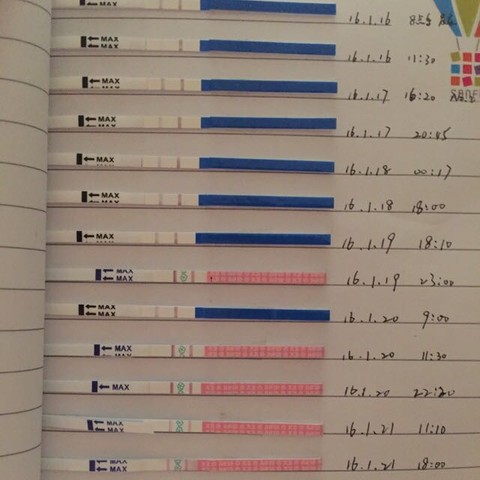 16.1.16
MAX
16.1.16 11:30
MAX
16.1.17 16:20
MAX
16.1.17
MAX
16.1.18 00:17
MAX
16.1.18 18:00
MAX
16.1.19 18:10
MAX
16.1.19 23:00
MAX
16.1.20 9:00
MAX
16.1.20 11:30
MAX
16.1.20 22:20
MAX
16.1.21 11:10
MAX
MAX
16.1.21 18:00